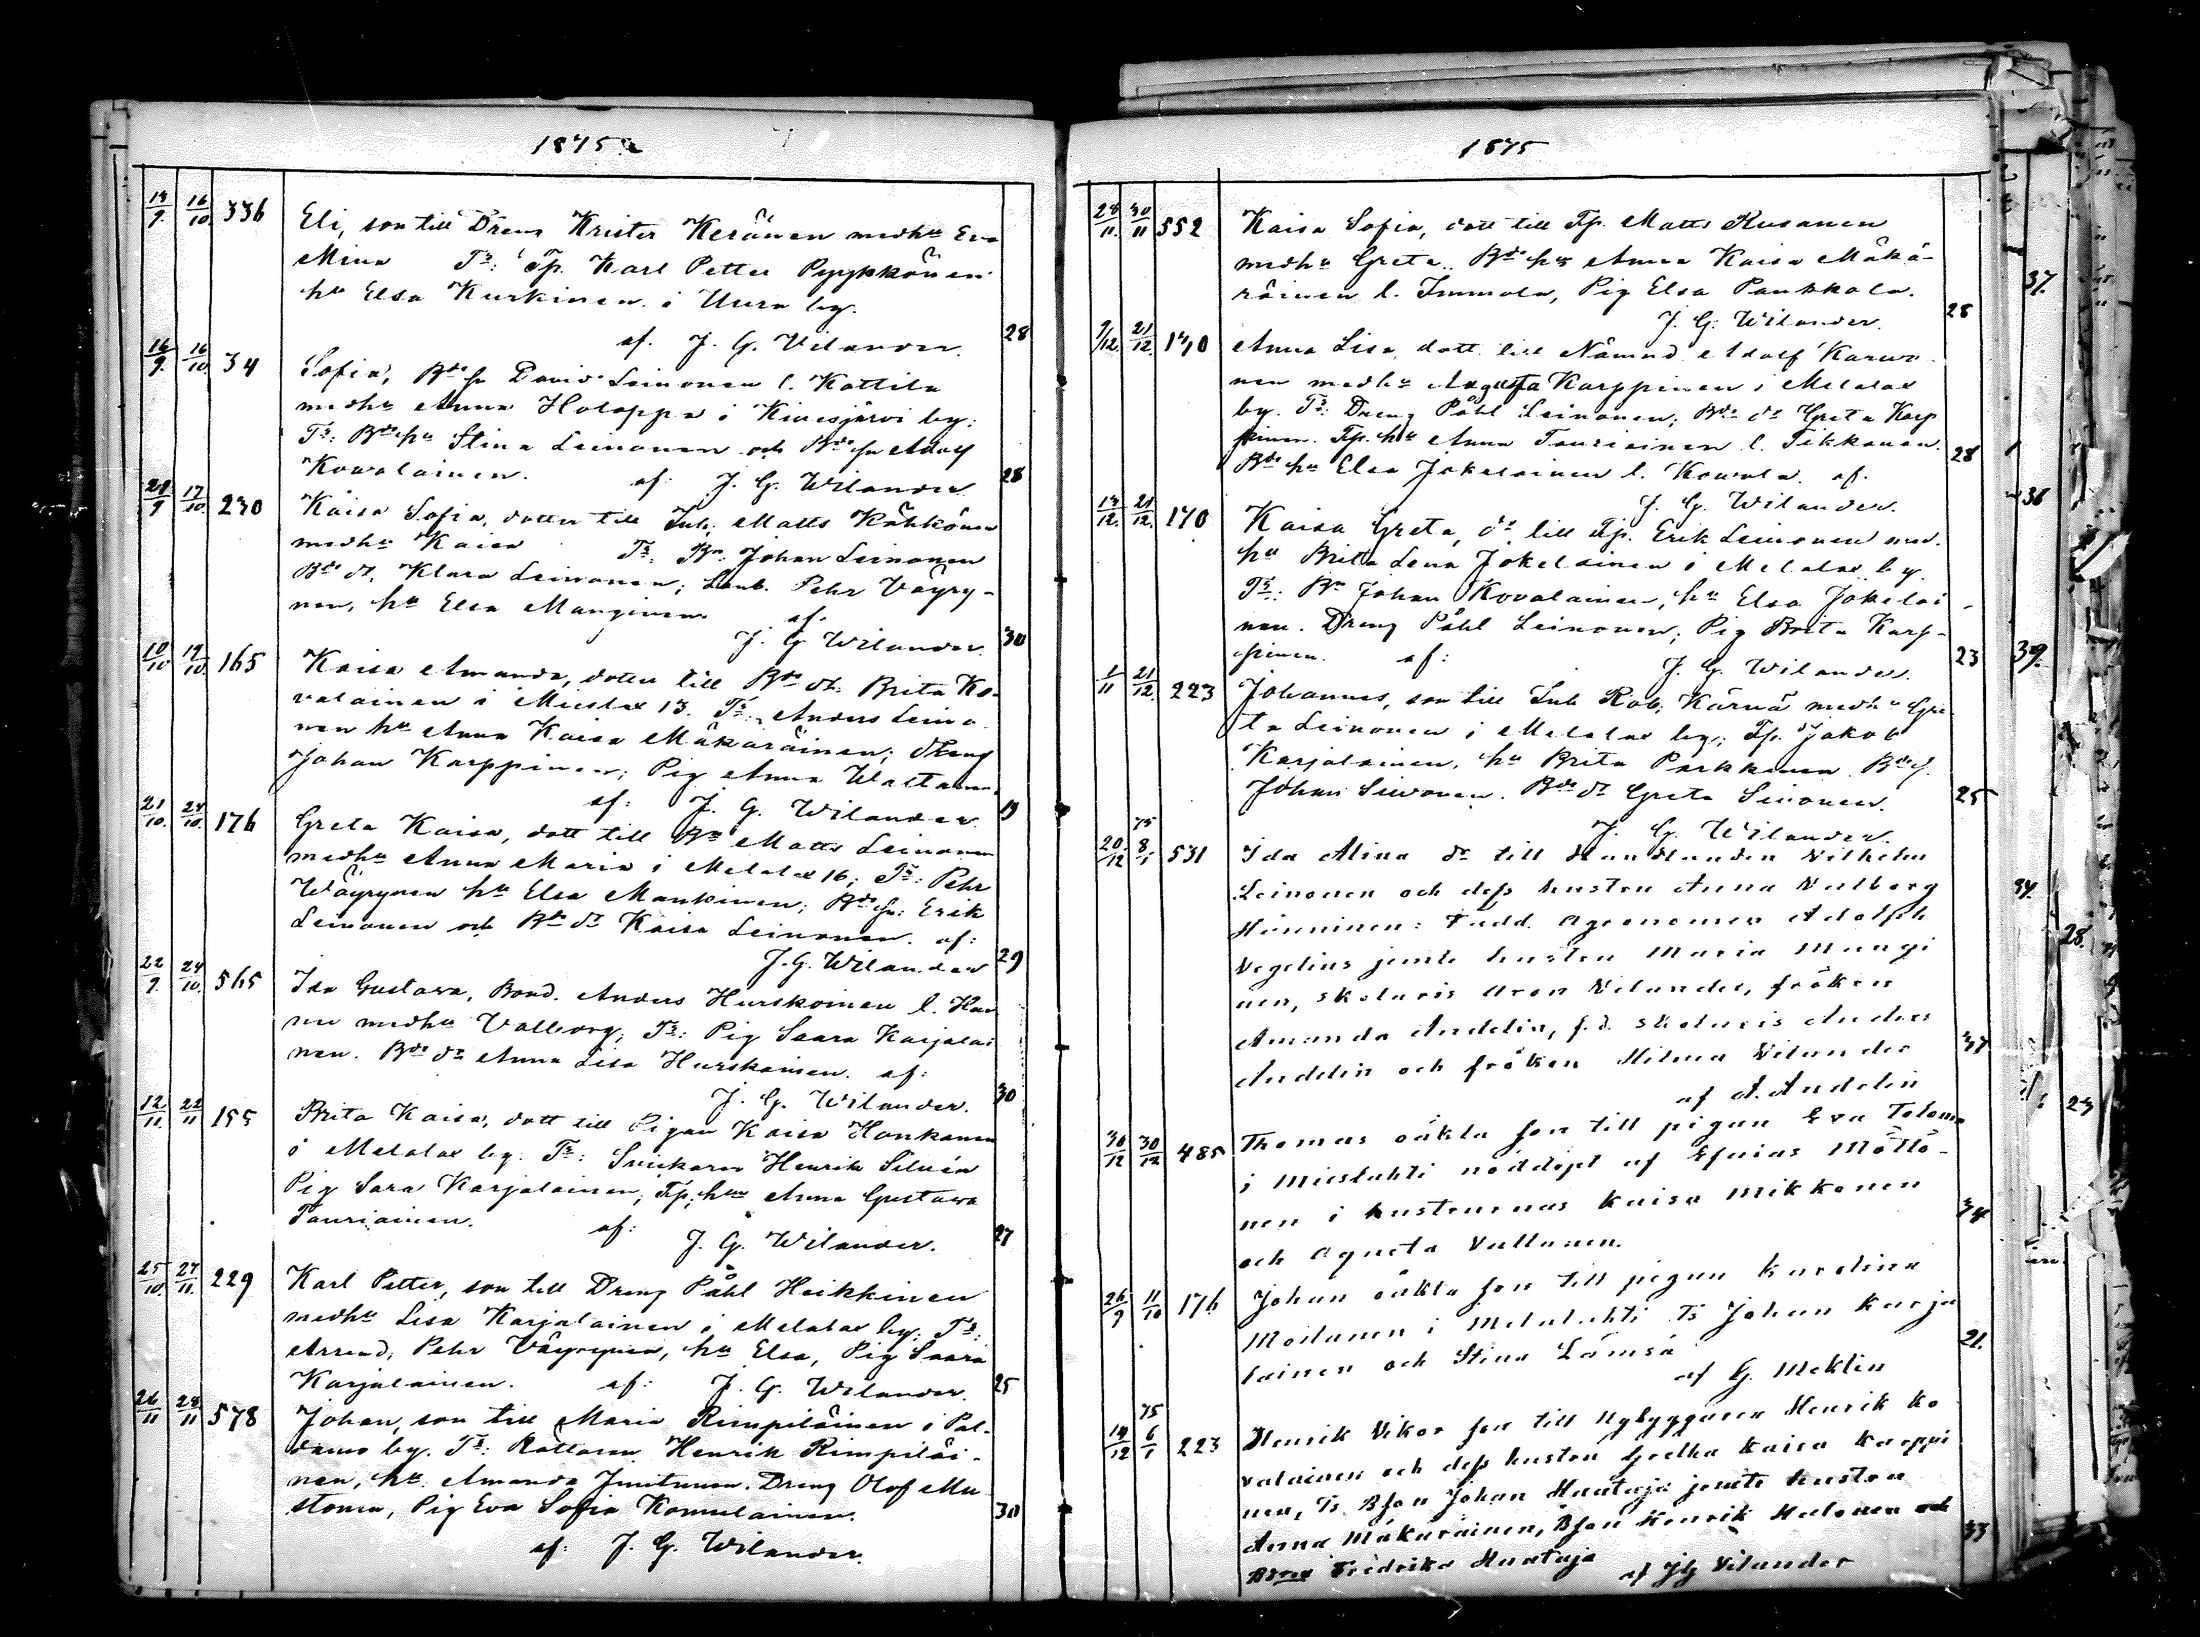 1875
14/9 16/10 336 Eli, son till Dreng Krister Keränen medhu Eva
Mina Ts: Tp. Karl Petter Pyykkönen
hu Elsa Kurkinen i Uura by.
af. J. G. Wilander. 28
16/9 16/10 34 Sofia, Bde sn David Leinonen l. Kottila
medhu Anna Holappa i Kivesjärvi by.
Ts: Bde hu Stina Leinonen och Bde sn Adolf
Kowalainen. af: J. G. Wilander 28
21/9 17/10 230 Kaisa Sofia, dotter till Inh. Matts Kähkönen
medhu Kaisa Ts: Bn. Johan Leinonen
Bde dr. Klara Leinonen; Landb. Pehr Väyry-
nen, hu Elsa Manginen. af.
J. G Wilander. 30
10/10 19/10 165 Kaisa Amanda, dotter till Bde dr. Brita Ko-
valainen i Mieslax 13. Ts: Anders Leino
nen hu Anna Kaisa Mäkäräinen; Dreng
Johan Karppinen; Pig Anna Waltanen
af: J. G. Wilander. 19
21/10 24/10 176 Greta Kaisa, dott till Bn Matts Leinonen
medhu Anna Maria i Melalax 16; Ts: Pehr
Wäyrynen hu Elsa Mankinen; Bde sn: Erik
Leinonen och Bde dr Kaisa Leinonen. af:
J. G. Wilander 29
22/9 24/10 565 Ida Gustava, Bond. Anders Hurskainen l. Kan
nu medhu Valborg; Ts: Pig Saara Karjalai
nen. Bde dr Anna Lisa Hurskainen. af:
J. G. Wilander. 30
12/11 22/11 155 Brita Kaisa, dott till Pigan Kaisa Honkanen
i Melalax by. Ts: Snickaren Henrik Silvén
Pig Sara Karjalainen; Tp. hu Anna Gustava
Tauriainen. af: J. G. Wilander. 27
25/10 27/11 229 Karl Petter, son till Dreng Påhl Heikkinen
medhu Lisa Karjalainen i Melalax by. Ts:
Arrend. Pehr Väyrynen, hu Elsa, Pig Saara
Karjalainen. af: J. G. Wilander. 25
26/11 28/11 578 Johan, son till Maria Rimpiläinen i Pal-
damo by. Ts: Rättaren Henrik Rimpiläi-
nen, hu Amanda Juntunen. Dreng Olof Mu
stonen, Pig Eva Sofia Komulainen. 30
af: J. G. Wilander.
1875
28/11 30/11 552 Kaisa Sofia, dott till Tp. Matts Kusanen
medhu Greta. Bde hu Anna Kaisa Mäkä-
räinen l. Immola, Pig Elsa Paukkala.
J. G. Wilander. 28
9/12 21/12 170 Anna Lisa dott till Nämnd. Adolf Karwo
nen medhu Augusta Karppinen i Melalax
by. Ts: Dreng Påhl Leinonen; Bde dr Greta Karp
pinen. Tp. hu Anna Tauriainen l. Tikkanen.
Bde hu Elsa Jokelainen l. Kowala. af. 28
J. G. Wilander.
13/12 21/12 170 Kaisa Greta, dr till Tp. Erik Leinonen med
hu Brita Lena Jokelainen i Melalax by.
Ts: Bn Johan Kovalainen, hu Elsa Jokelai-
nen. Dreng Påhl Leinonen; Pig Brita Karp-
pinen. af: J. G. Wilander. 23
1/11 21/12 223 Johannes, son till Inh Rob. Kärnä medhu Gre
ta Leinonen i Melalax by; Tp. Jakob
Karjalainen, hu Brita Parkkinen Bde s.
Johan Leinonen. Bde dr Greta Leinonen. 25
J. G. Wilander.
20/12 75 8/1 531 Ida Alina dr till Handlanden Vilhelm
Leinonen och dess hustru Anna Valborg
Hänninen: Fadd. agronomen Adolph
Vegelius jemte hustru Maria Mangi
nen, skolaris Aron Vilander, fröken
Amanda Andelin, f.d. skolaris Anders
Andelin och fröken Hilma Vilander 37
af A. Andelin
30/12 30/12 485 Thomas oäkta son till pigan Eva Tolonen
i Mieslahti nöddöpt af Esaias Möttö-
nen i hustrurnas Kaisa Mikkonen
och Agneta Valtanen. 34
26/9 11/10 176 Johan oäkta son till pigan Karolina
Moilanen i Melalahti Ts Johan Karja
lainen och Stina Lämsä 21.
af G. Meklin
14/12 75 6/1 223 Henrik Viktor son till Nybyggaren Henrik Ko
valainen och dess hustru Gretha Kaisa Karppi
nen, Ts Bson Johan Haataja jemte hustru
Anna Mäkäräinen, Bson Henrik Halonen och
Fredrika Haataja af JG Vilander 33
37.
38
39.
28.
23